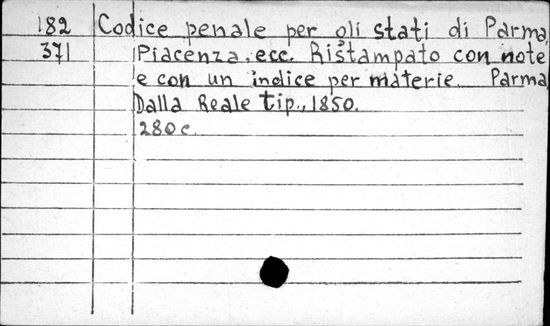 182 Codice penale per gli stati di Parma,
371 Piacenza, ecc. Ristampato con note
e con un indice per materie. Parma,
Dalla Reale tip., 1850.
280 c.